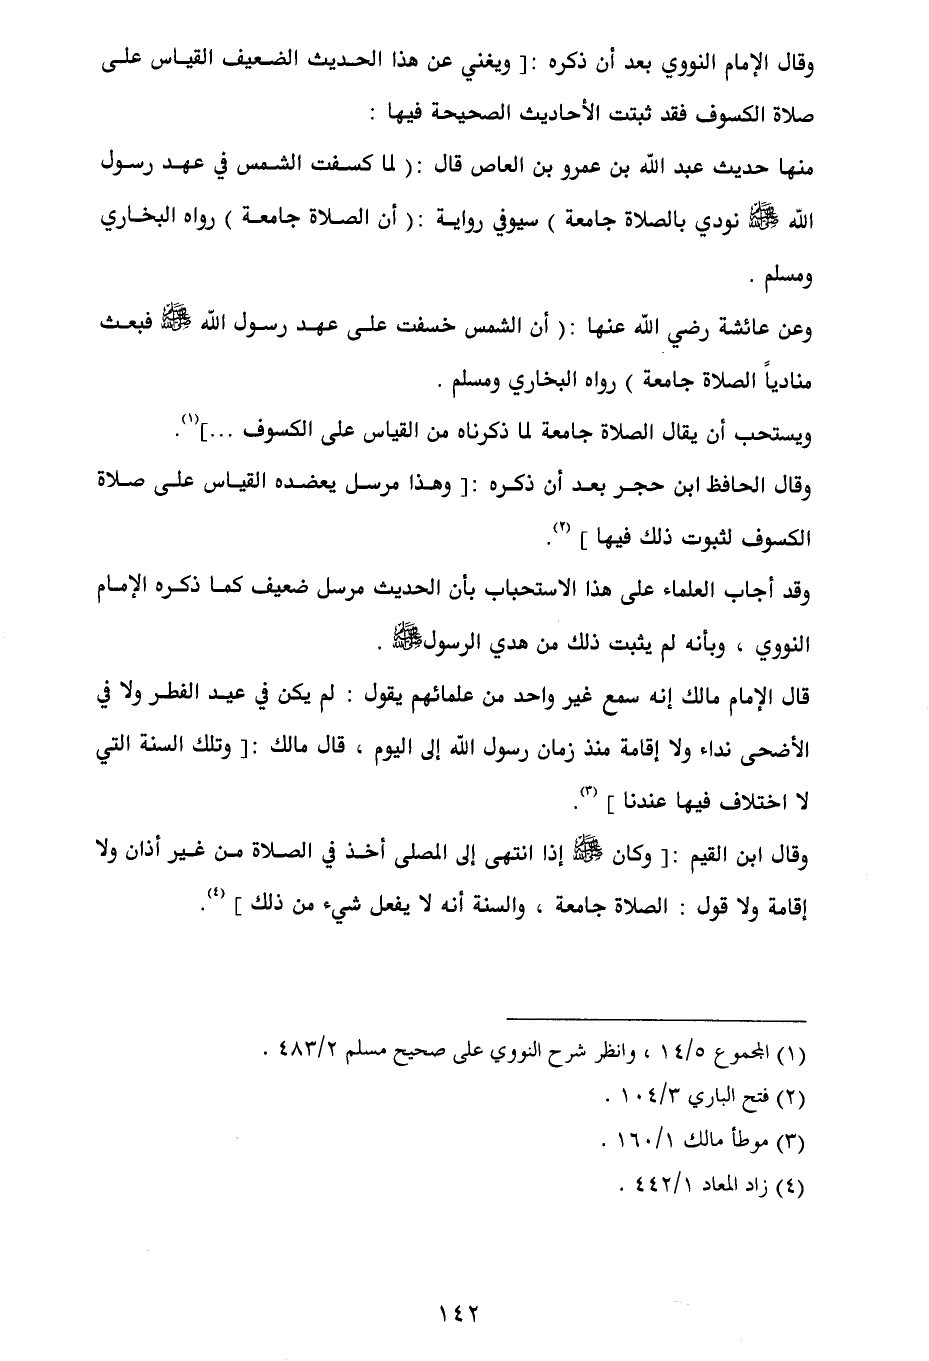 وقال الإمام النووي بعد أن ذكره :[ ويغني عن هذا الحديث الضعيف القياس على
صلاة الكسوف فقد ثبتت الأحاديث الصحيحة فيها :
منها حديث عبد الله بن عمرو بن العاص قال :( لما كسفت الشمس في عهد رسول
الله ﷺ نودي بالصلاة جامعة ) سيوفي رواية :( أن الصلاة جامعة ) رواه البخاري
ومسلم .
وعن عائشة رضي الله عنها :( أن الشمس خسفت على عهد رسول الله ﷺ فبعث
منادياً الصلاة جامعة ) رواه البخاري ومسلم .
ويستحب أن يقال الصلاة جامعة لما ذكرناه من القياس على الكسوف ...](١).
وقال الحافظ ابن حجر بعد أن ذكره :[ وهذا مرسل يعضده القياس على صلاة
الكسوف لثبوت ذلك فيها ] (٢).
وقد أجاب العلماء على هذا الاستحباب بأن الحديث مرسل ضعيف كما ذكره الإمام
النووي ، وبأنه لم يثبت ذلك من هدي الرسولﷺ .
قال الإمام مالك إنه سمع غير واحد من علمائهم يقول : لم يكن في عيد الفطر ولا في
الأضحى نداء ولا إقامة منذ زمان رسول الله إلى اليوم ، قال مالك :[ وتلك السنة التي
لا اختلاف فيها عندنا ] (٣).
وقال ابن القيم :[ وكان ﷺ إذا انتهى إلى المصلى أخذ في الصلاة من غير أذان ولا
إقامة ولا قول : الصلاة جامعة ، والسنة أنه لا يفعل شيء من ذلك ] (٤).
(١) المجموع ١٤/٥ ، وانظر شرح النووي على صحيح مسلم ٤٨٣/٢ .
(٢) فتح الباري ١٠٤/٣ .
(٣) موطأ مالك ١٦٠/١ .
(٤) زاد المعاد ٤٤٢/١ .
١٤٢